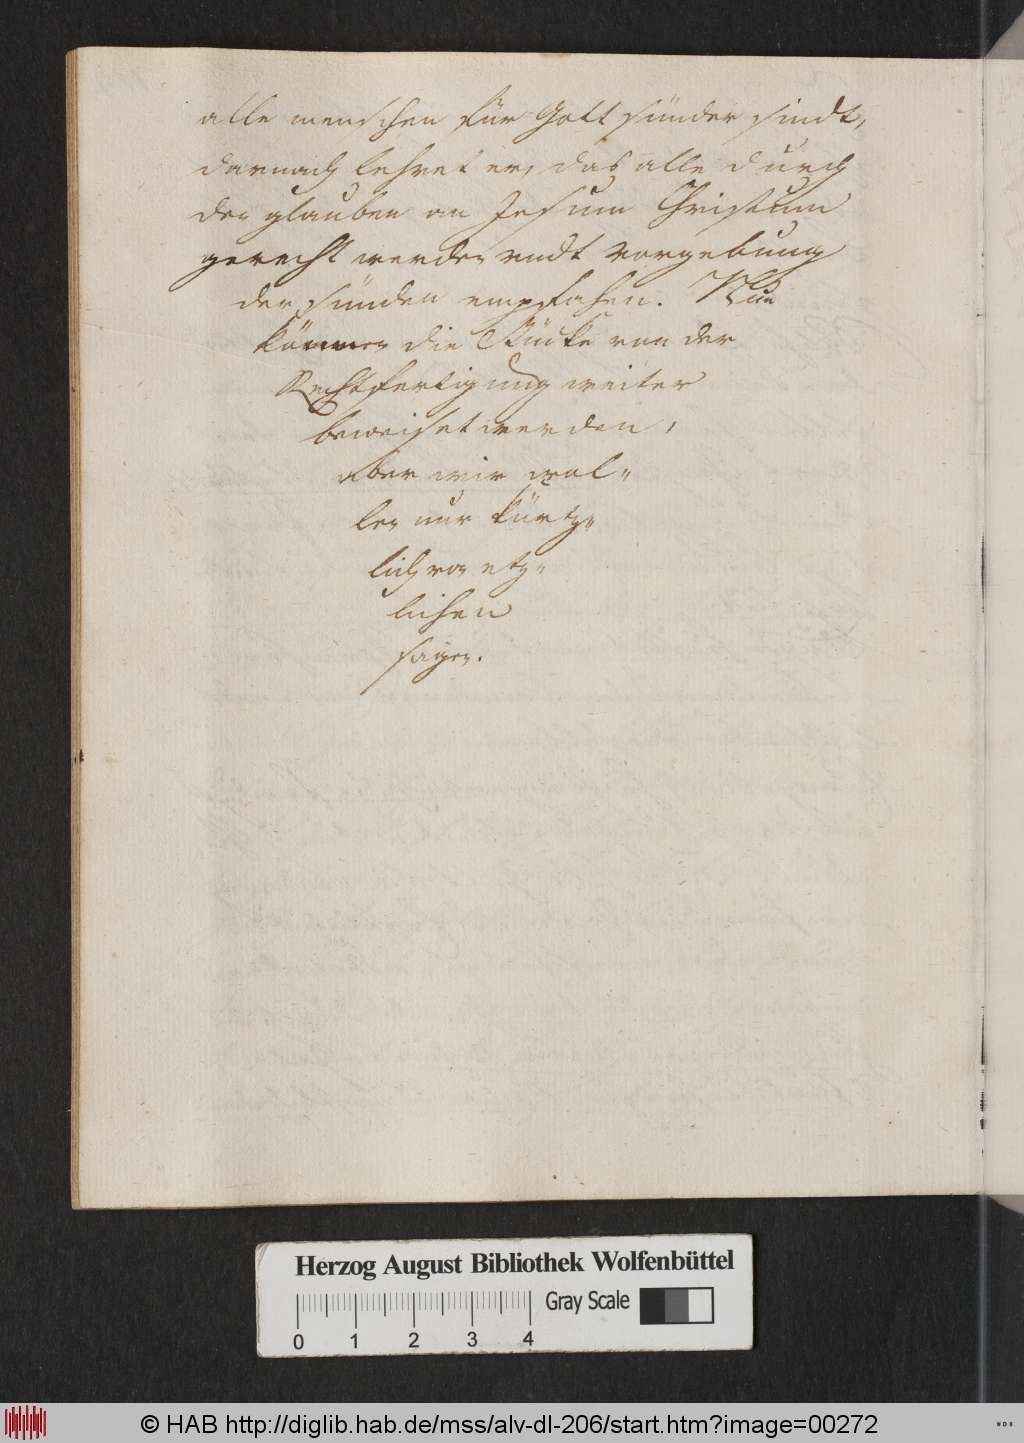 alle menschen für Gott sünder sindt,
darnach lehret er, das alle durch
den glauben an Jesum Christum
gerecht werden undt vorgebung
der sünden empfahen. Nun
können die Stücke von der
Rechtfertigung weiter
beweiset werden,
aber wir wol„
len nur kürtz„
lich von etz„
lichen
sagen.
Herzog August Bibliothek Wolfenbüttel
Gray Scale
0 1 2 3 4
© HAB http://diglib.hab.de/mss/alv-dl-206/start.htm?image=00272
WDB